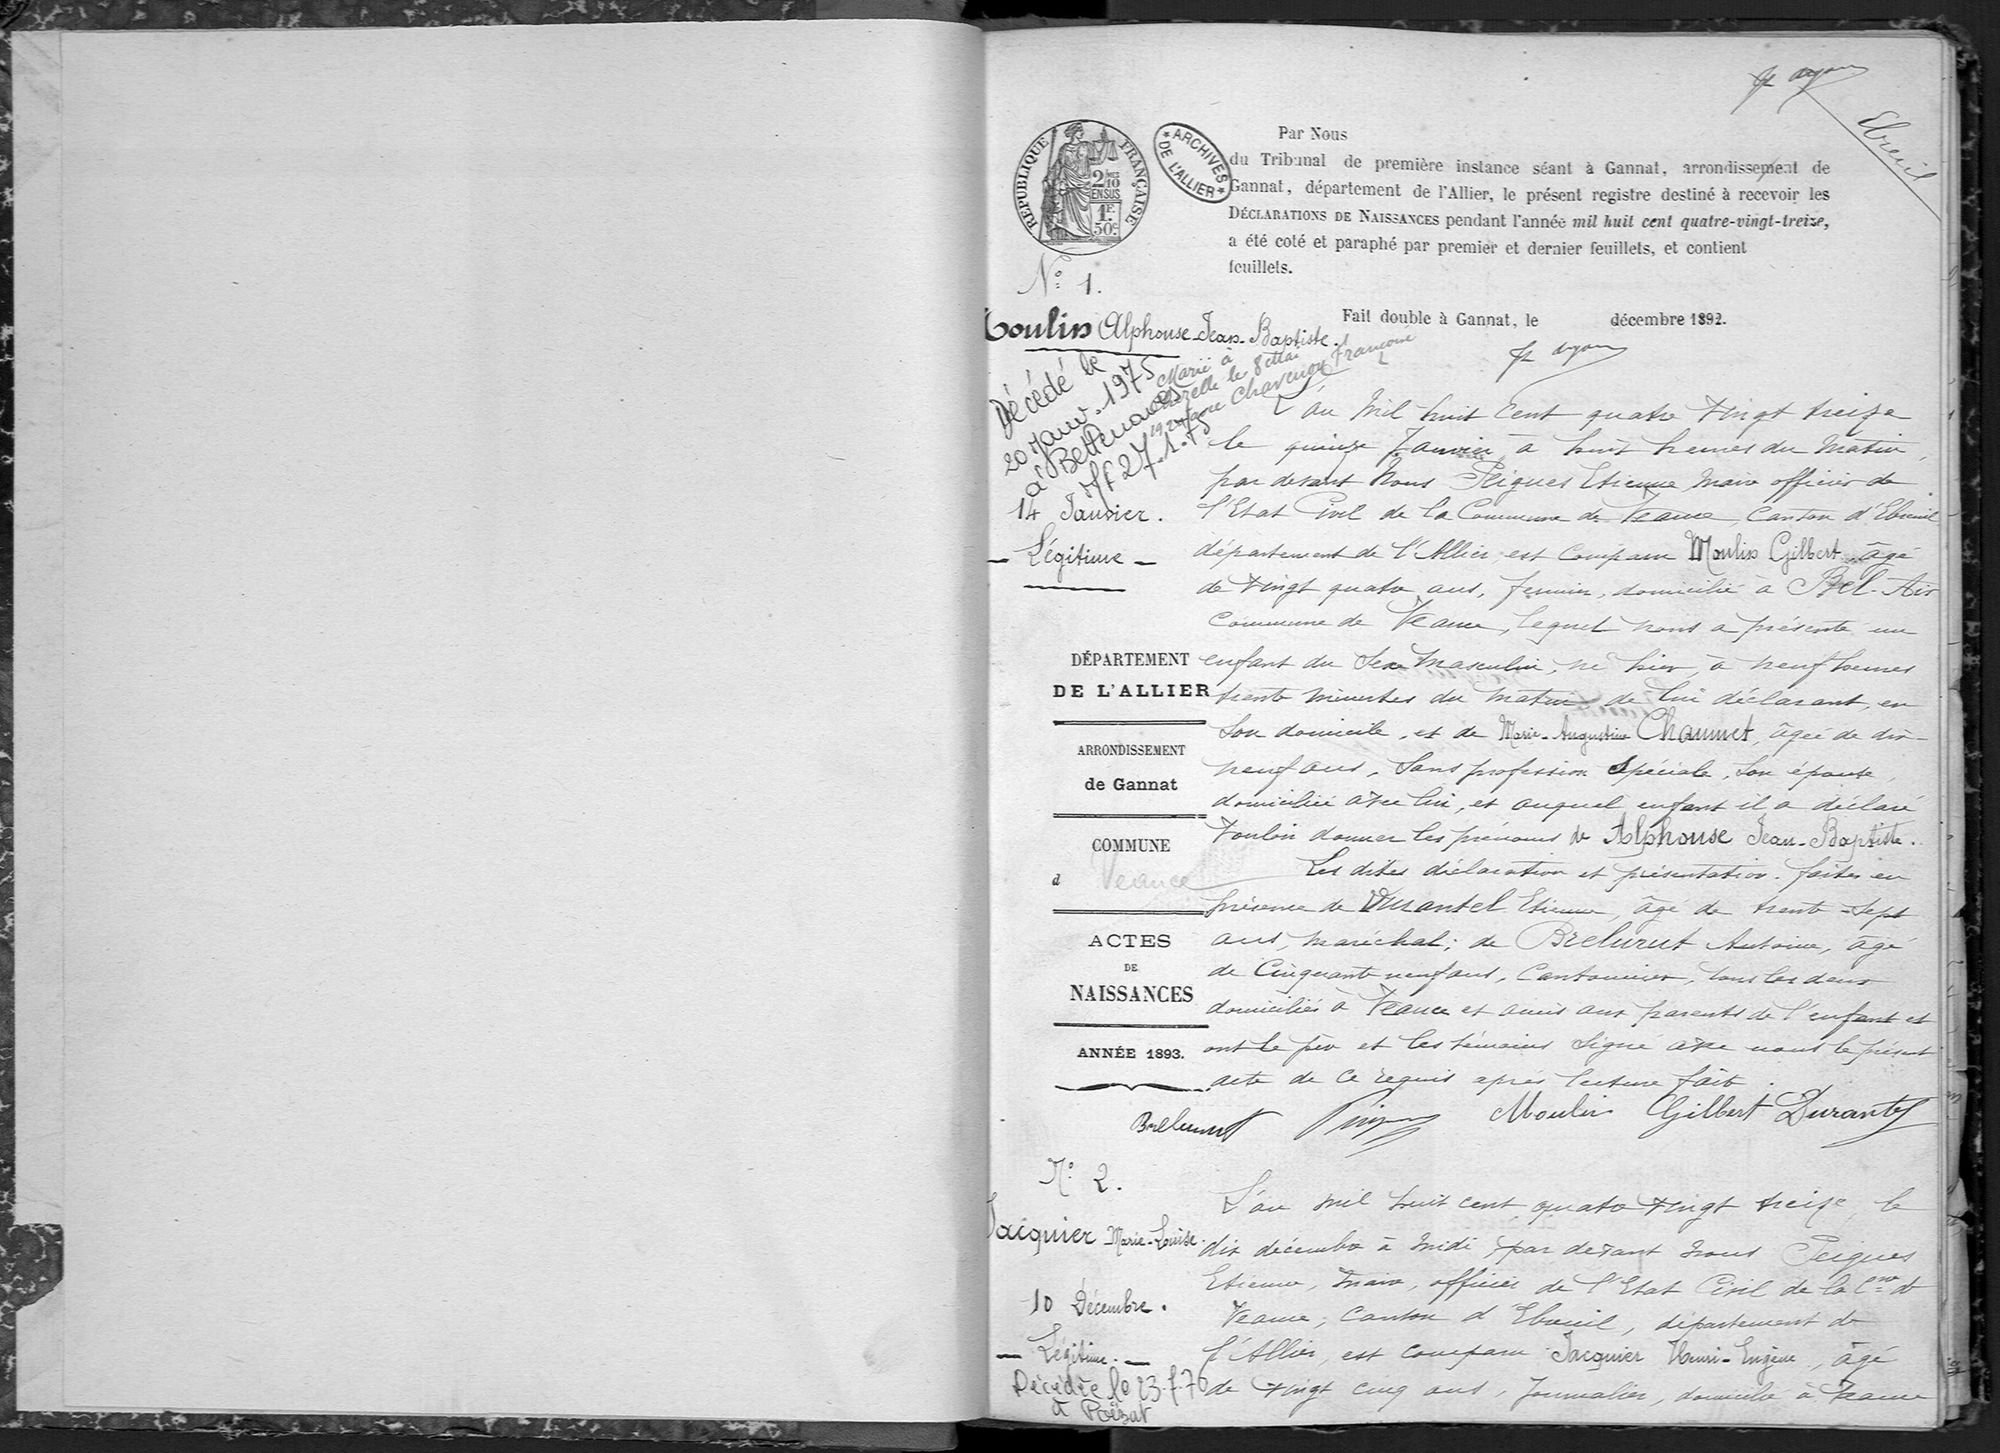 Ebreuil
RÉPUBLIQUE FRANÇAISE
2 DMES
10
EN SUS
1 F.
50 C.
ARCHIVES
DE L'ALLIER
Par Nous
du Tribunal de première instance séant à Gannat, arrondissement de
Gannat, département de l'Allier, le présent registre destiné à recevoir les
DÉCLARATIONS DE NAISSANCES pendant l'année mil huit cent quatre-vingt-treize,
a été coté et paraphé par premier et dernier feuillets, et contient
feuillets.
Fait double à Gannat, le décembre 1892.
N° 1.
Moulin Alphonse-Jean-Baptiste.
Marié à
le 8 mai
1920 avec Chavenon Françoise
Décédé le
20 Janv. 1975
à Bellenaves
27.1.75
14 Janvier.
Légitime
DÉPARTEMENT
DE L'ALLIER
ARRONDISSEMENT
de Gannat
COMMUNE
d Veauce
ACTES
DE
NAISSANCES
ANNÉE 1893.
L'an Mil huit cent quatre vingt treize
le quinze Janvier à huit heures du matin,
par devant Nous Peigues Etienne, Maire officier de
l'Etat Civil de la Commune de Veauce, Canton d'Ebreuil
département de l'Allier, est comparu Moulin Gilbert, âgé
de vingt quatre ans, fermier, domicilié à Bel-Air
Commune de Veauce, lequel nous a présenté un
enfant du Sexe Masculin, né hier, à neuf heures
trente minutes du matin, de lui déclarant, en
son domicile, et de Marie-Augustine Chaumet, âgée de dix-
neuf ans, Sans profession Spéciale, son épouse,
domiciliée avec lui, et auquel enfant il a déclaré
vouloir donner les prénoms de Alphonse Jean-Baptiste.
Les dites déclaration et présentation faites en
présence de Durantel Etienne, âgé de trente-sept
ans, Maréchal; de Brelurut Antoine, âgé
de Cinquante neuf ans, Cantonnier, tous les deux
domiciliés à Veauce et amis aux parents de l'enfant et
ont le père et les témoins signé avec nous le présent
acte de ce requis après lecture faite.
Brelurut Moulin Gilbert Durantel
N° 2.
Jacquier Marie-Louise.
10 Décembre.
Légitime.
Décédée le 23.7.76
à Poëzat
L'an mil huit cent quatre vingt treize, le
dix décembre à midi par devant nous Peigues
Etienne, maire, officier de l'Etat Civil de la Cne de
Veauce, canton d'Ebreuil, département de
l'Allier, est comparu Jacquier Henri-Eugène, âgé
de vingt cinq ans, Journalier, domicilié à Veauce